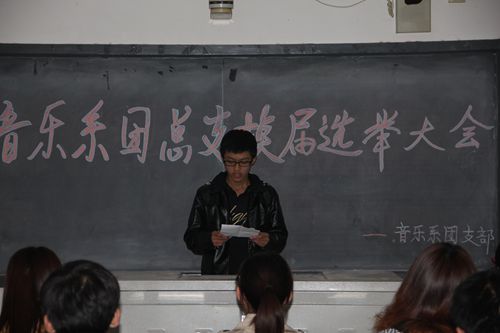 音乐系团总支换届选举大会
一音乐系团支部